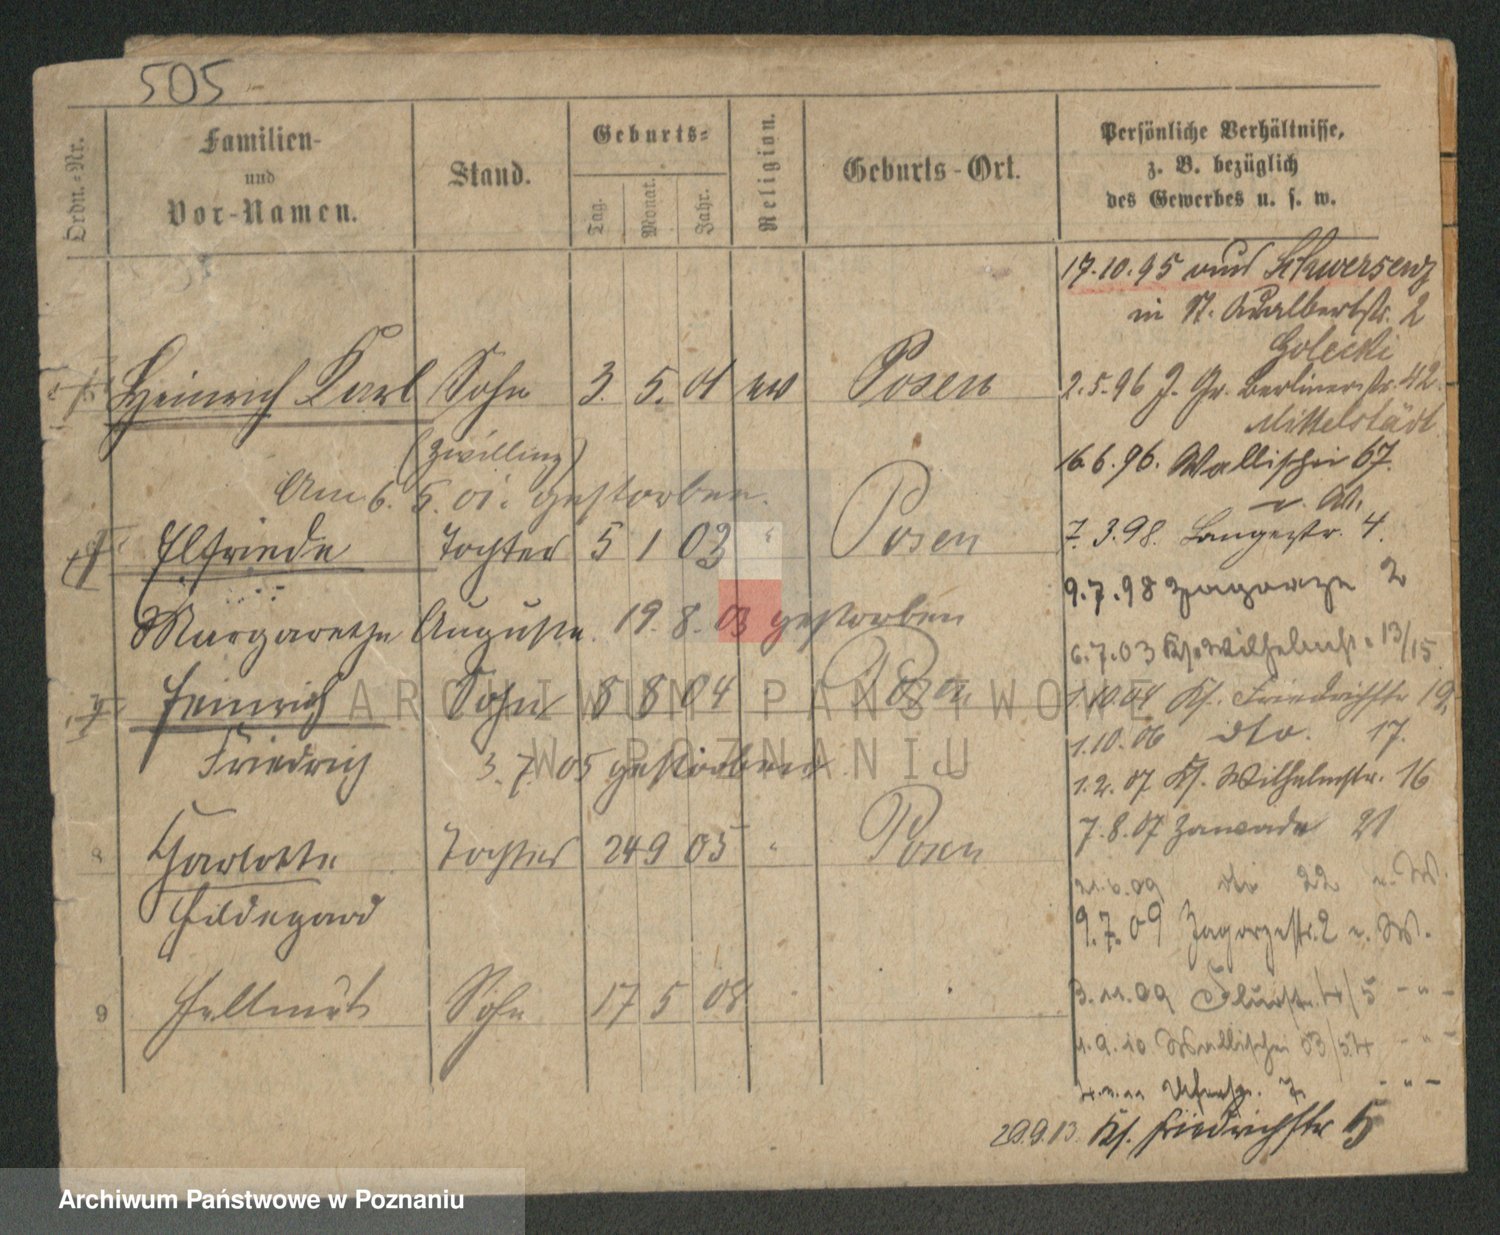 505
Ordn.-Nr.
Familien-
und
Vor-Namen.
Stand.
Geburts-
Tag.
Monat.
Jahr.
Religion.
Geburts-Ort.
Persönliche Verhältnisse,
z. B. bezüglich
des Gewerbes u. s. w.
17.10.95 aus Schwersenz
in St. Adalbertstr. 2
Golecki
Heinrich Karl Sohn 3. 5. 01 ev Posen
2.5.96 Gr. Berlinerstr. 42
Mittelstädt
(Zwilling)
16.6.96. Wallischei 67.
Am 6. 5. 01. gestorben.
Elfriede Tochter 5 1 03 " Posen
7. 3.98. Langestr. 4.
9.7.98 Zagorze 2
Margarethe Auguste. 19. 8. 03 gestorben
6.7.03 Ks. Wilhelmstr. 13/15
Heinrich Sohn 8 8 04 " Posen
1.10.04 Ks. Friedrichstr 19.
Friedrich 3. 7. 05 gestorben
1.10.06 dto. 17.
1.2.07 Ks. Wilhelmstr. 16
7.8.07 Zawade 21
8 Charlotte Tochter 24 9 05 " Posen
22 u. W.
Hildegard
9.7.09 Zagorzestr. 2 u. W.
9 Hellmut Sohn 17 5 08
3.11.09 Flurstr. 4/5 - " -
1.9.10 Wallischei 53/54 - " -
- " -
29.9.13. Ks. Friedrichstr 5
ARCHIWUM PAŃSTWOWE
W POZNANIU
Archiwum Państwowe w Poznaniu